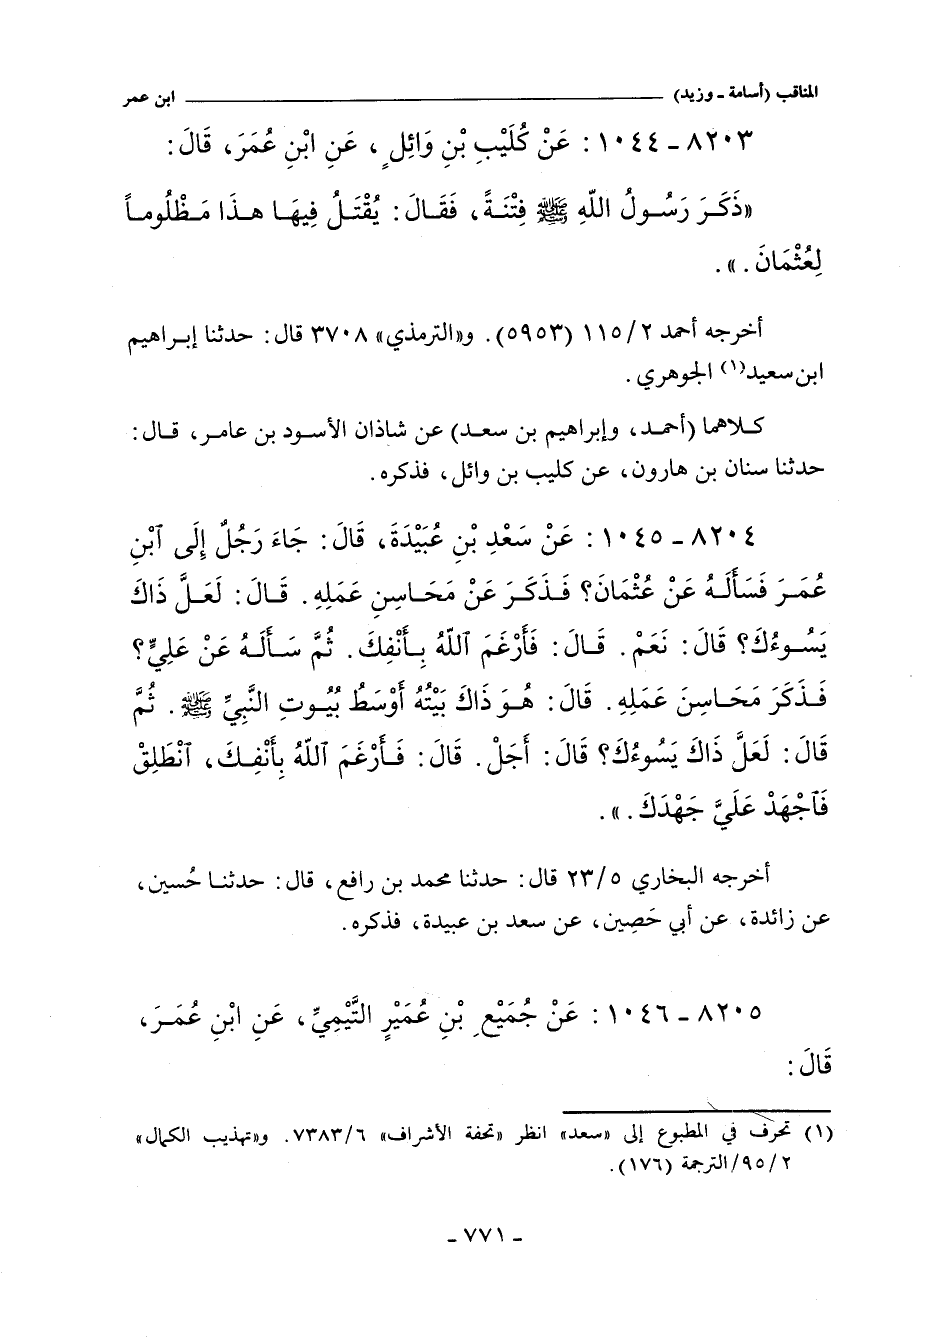 المناقب (أسامة - وزيد) ــــــــــــــــــــــــــــــــ ابن عمر
٨٢٠٣ - ١٠٤٤ : عَنْ كُلَيْبِ بْنِ وَائِلٍ ، عَنِ ابْنِ عُمَرَ، قَالَ:
«ذَكَرَ رَسُولُ اللّهِ ﷺ فِتْنَةً، فَقَالَ: يُقْتَلُ فِيهَا هذَا مَظْلُوماً
لِعُثْمَانَ . ». 
أخرجه أحمد ١١٥/٢ (٥٩٥٣). و«الترمذي» ٣٧٠٨ قال: حدثنا إبراهيم
ابن سعيد(١) الجوهري .
كلاهما (أحمد، وإبراهيم بن سعد) عن شاذان الأسود بن عامر، قال:
حدثنا سنان بن هارون، عن كليب بن وائل، فذكره.
٨٢٠٤ - ١٠٤٥ : عَنْ سَعْدِ بْنِ عُبَيْدَةَ، قَالَ: جَاءَ رَجُلٌ إِلَى ٱبْنِ
عُمَرَ فَسَأَلَهُ عَنْ عُثْمَانَ؟ فَذَكَرَ عَنْ مَحَاسِنِ عَمَلِهِ. قَالَ: لَعَلَّ ذَاكَ
يَسُوءُكَ؟ قَالَ: نَعَمْ. قَالَ: فَأَرْغَمَ ٱللّهُ بِأَنْفِكَ. ثُمَّ سَأَلَهُ عَنْ عَلِيٍّ؟
فَذَكَرَ مَحَاسِنَ عَمَلِهِ. قَالَ: هُوَ ذَاكَ بَيْتُهُ أَوْسَطُ بُيُوتِ النَّبِيِّ ﷺ. ثُمَّ
قَالَ: لَعَلَّ ذَاكَ يَسُوءُكَ؟ قَالَ: أَجَلْ. قَالَ: فَأَرْغَمَ ٱللّهُ بِأَنْفِكَ، ٱنْطَلِقْ
فَٱجْهَدْ عَلَيَّ جَهْدَكَ . ».
أخرجه البخاري ٢٣/٥ قال: حدثنا محمد بن رافع، قال: حدثنا حُسين،
عن زائدة، عن أبي حَصِين، عن سعد بن عبيدة، فذكره.
٨٢٠٥ - ١٠٤٦ : عَنْ جُمَيْعِ بْنِ عُمَيْرٍ التَّيْمِيِّ، عَنِ ابْنِ عُمَرَ،
قَالَ:
(١) تحرف في المطبوع إلى «سعد» انظر «تحفة الأشراف» ٧٣٨٣/٦. و«تهذيب الكمال»
٩٥/٢/الترجمة (١٧٦).
- ٧٧١ -